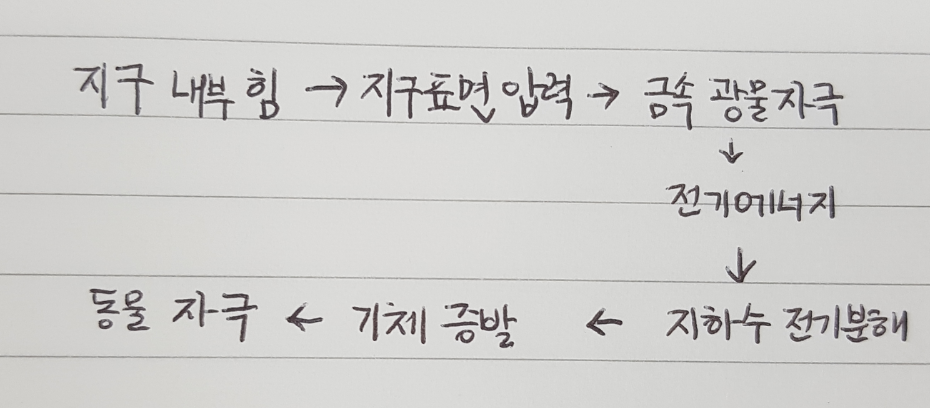 지구 내부 힘 → 지구표면 압력 → 금속 광물자극
↓
전기에너지
↓
동물 자극 ← 기체 증발 ← 지하수 전기분해